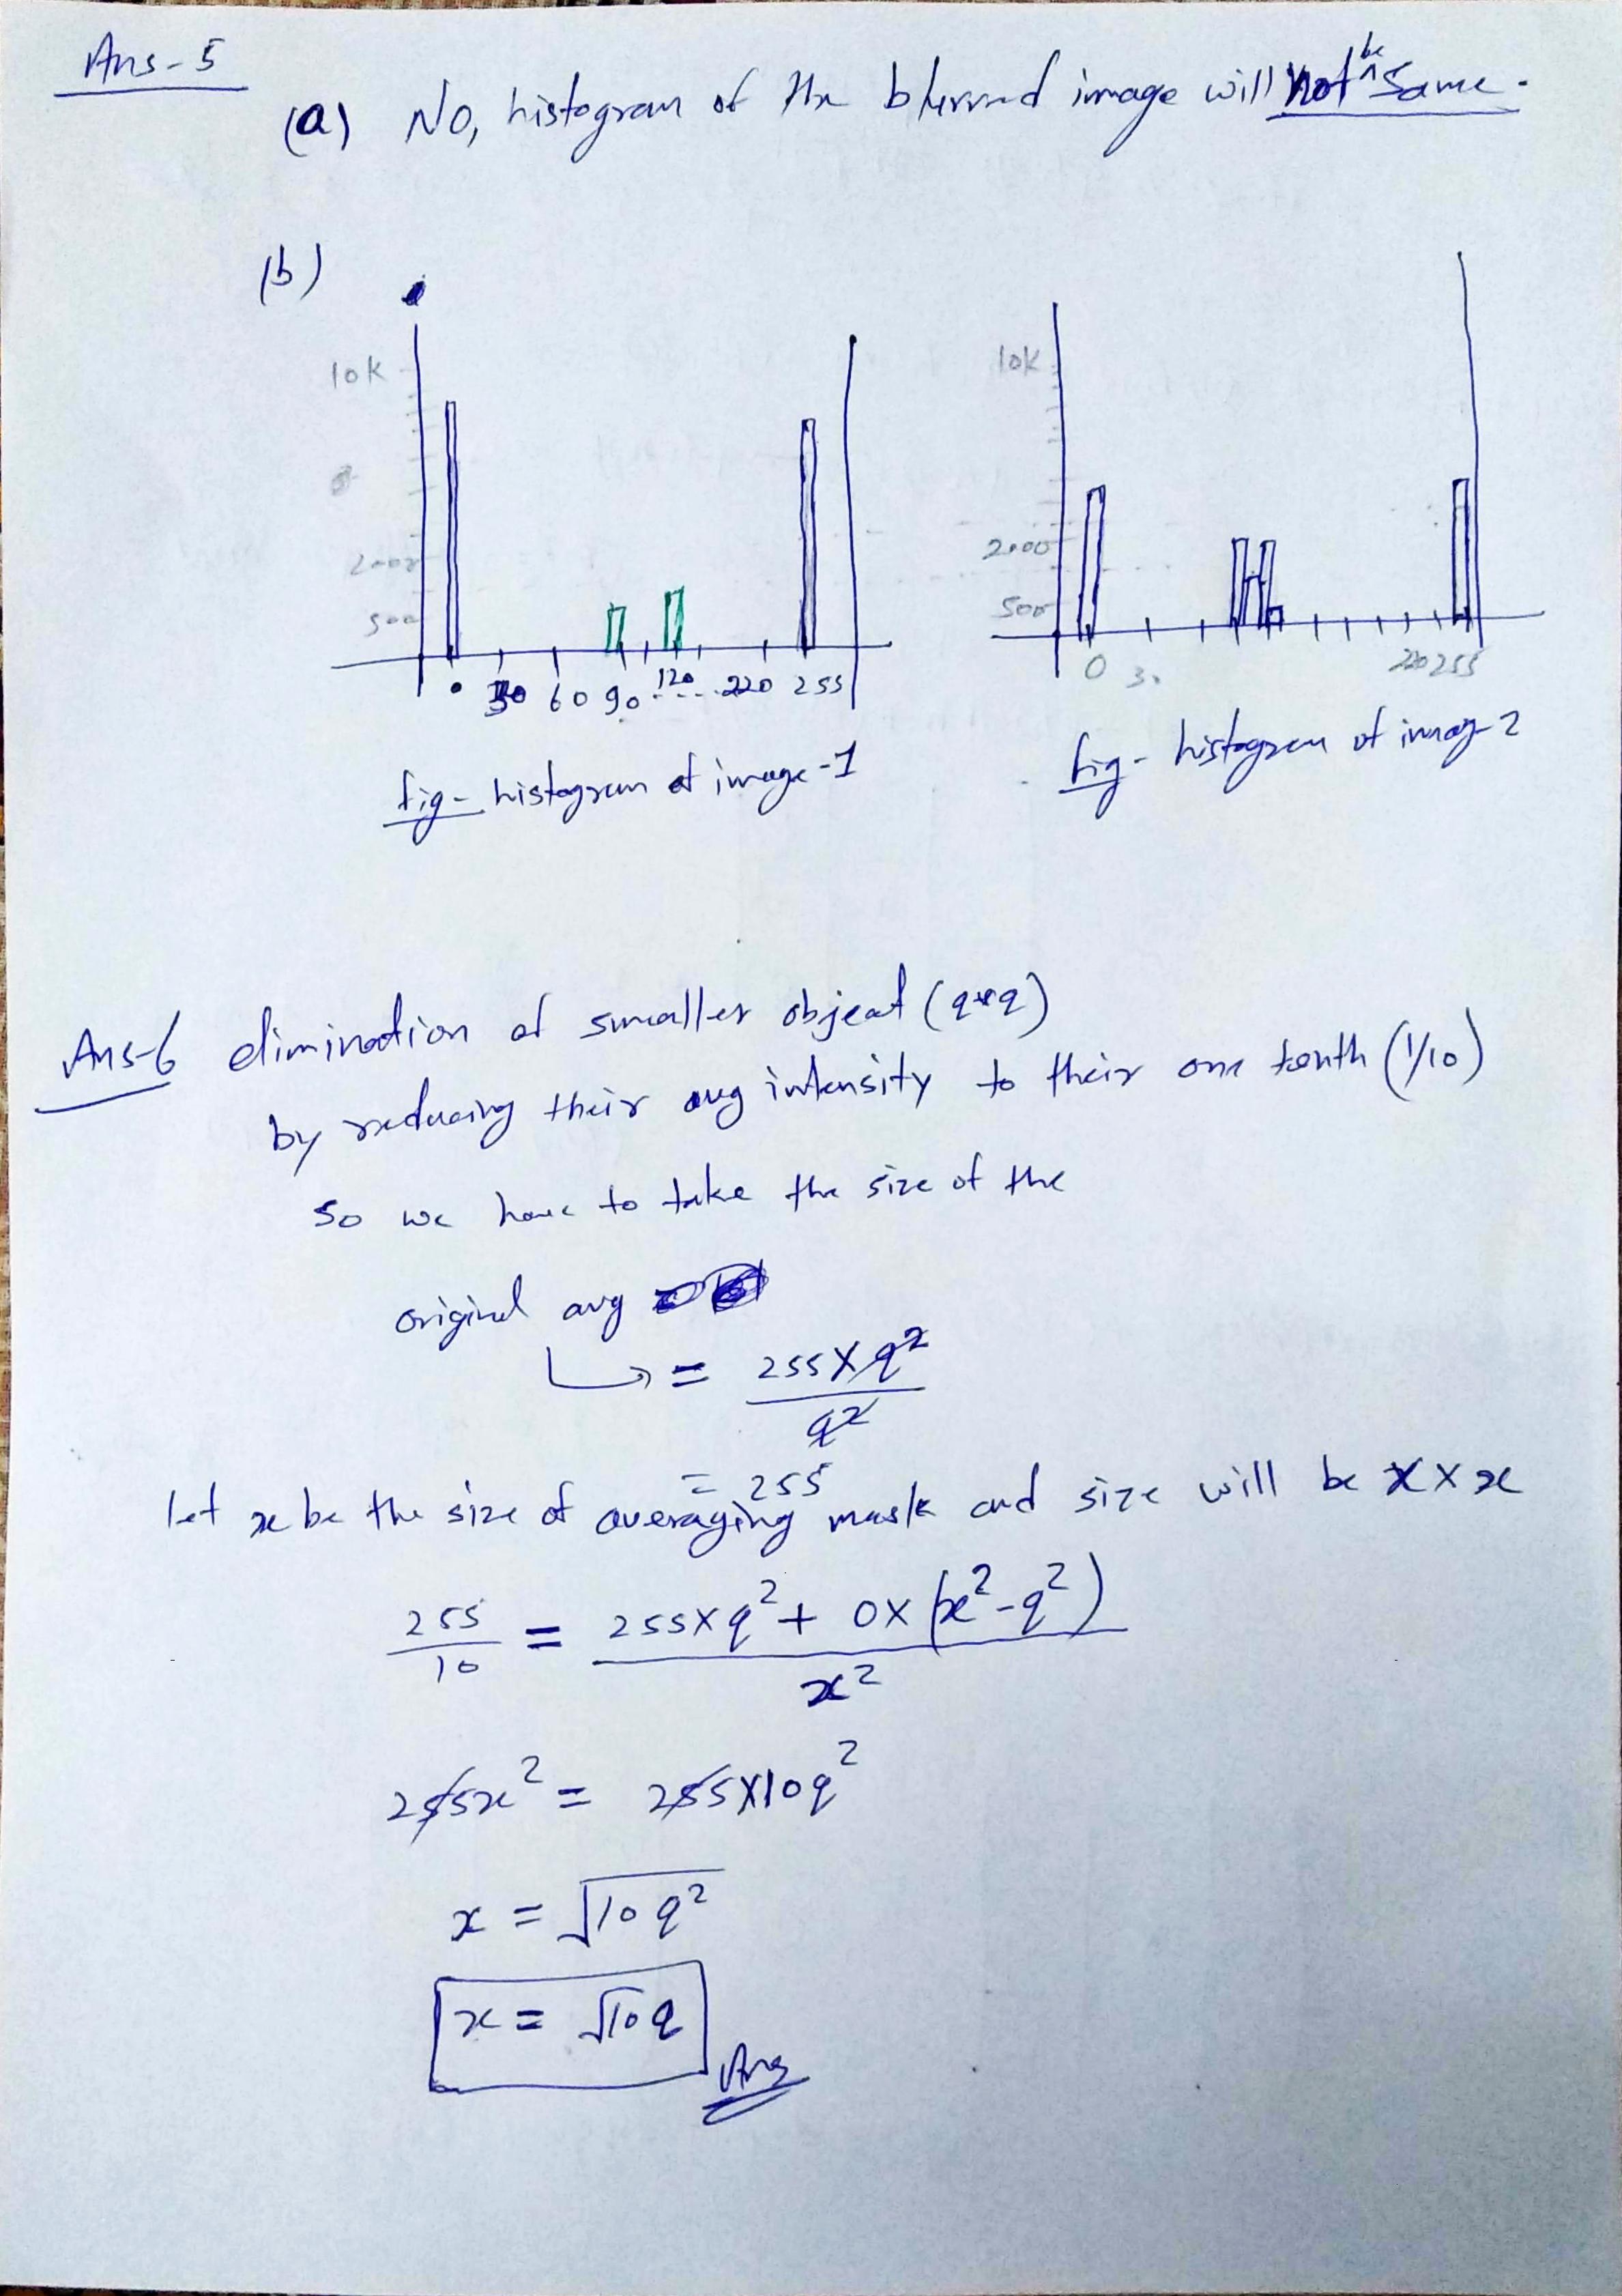 Ans-5
(a) No, histogram of the blurred image will not be same.
(b)
10K
2000
500
0 30 60 90 120 .... 220 255
fig- histogram of image-1
10K
2000
500
0 30 220 255
fig- histogram of imag-2
Ans-6 elimination of smaller object (q×q)
by reducing their avg intensity to their one tenth (1/10)
so we have to take the size of the
original avg
↳ = 255×q² / q²
= 255
let x be the size of averaging mask and size will be x×x
255/10 = 255×q² + 0×(x²-q²) / x²
255x² = 255×10q²
x = √10q²
x = √10q
Ans